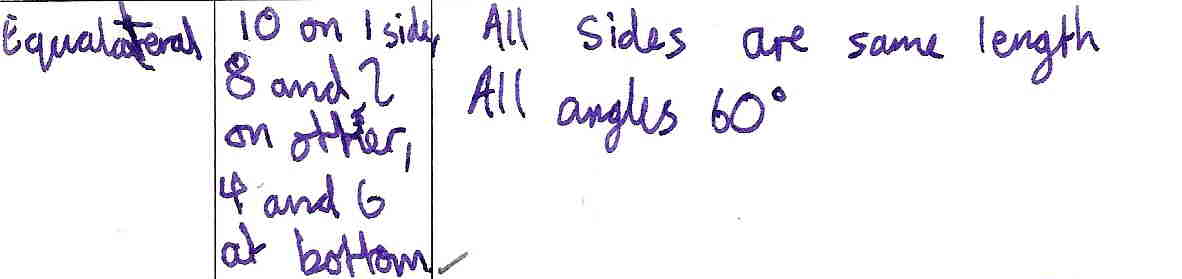 Equalateral
10 on 1 side,
8 and 2
on other,
4 and 6
at bottom
All sides are same length
All angles 60°